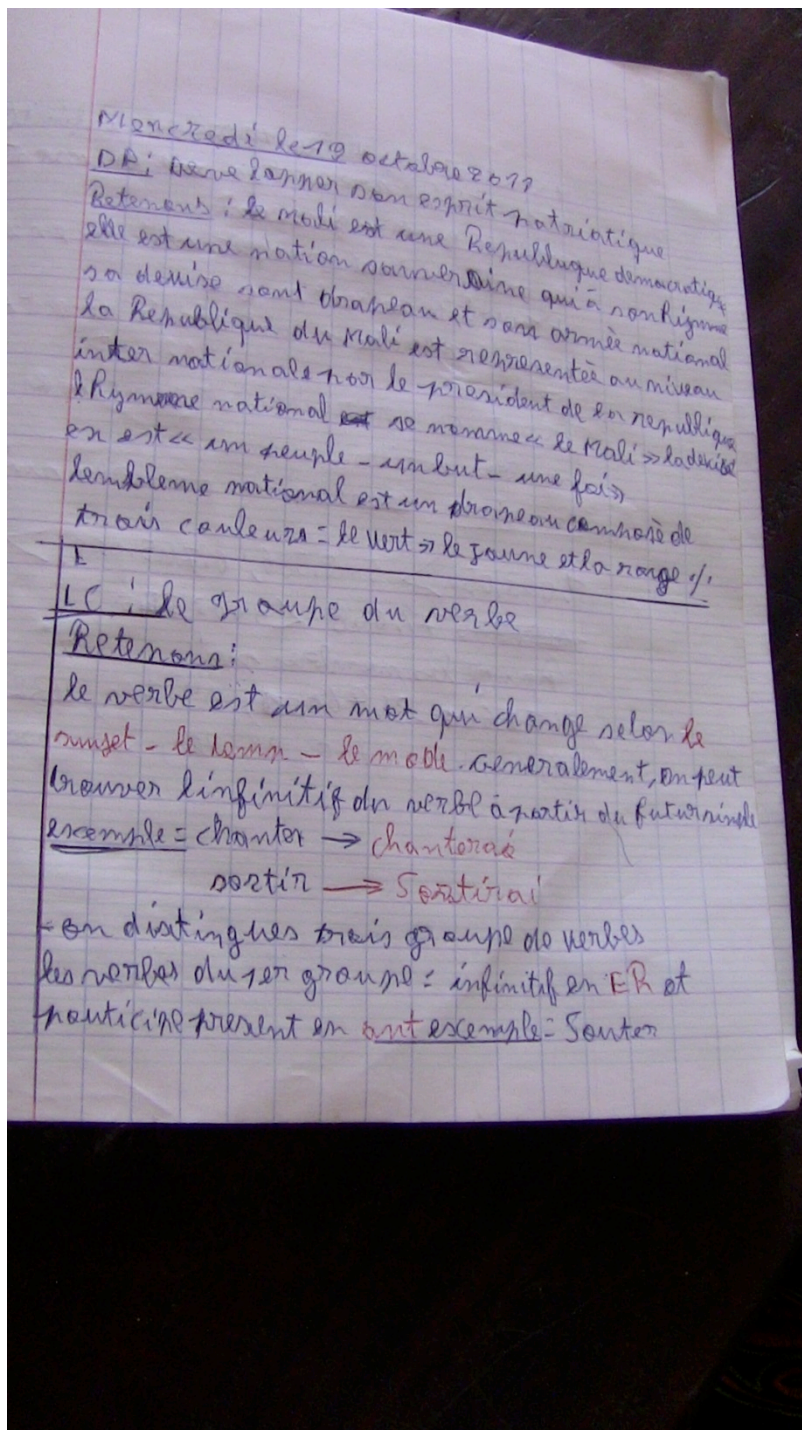 Mercredi le 19 octobre 2011
DP: Developper son esprit patriotique
Retenons: le Mali est une Republuque democratique
elle est une nation souveraine qui à son Hymne
sa devise sont drapeau et son armée national
la Republique du Mali est representée au niveau
internationale par le president de la republique
l'hymne national se nomme « le Mali » la devise
en est « un peuple - un but - une foi »
lembleme national est un drapeau composè de
trois couleurs = le vert » le jaune et la rouge ./.
LC: le groupe du verbe
Retenons:
le verbe est un mot qui change selon le
sujet - le temp - le mode. Generalement, on peut
trouver linfinitif du verbe à partir du futur simple
excemple = chanter → chanterai
sortir → Sortirai
- on distingues trois groupe de verbes
les verbes du 1er groupe = infinitif en ER et
participe present en ant excemple = Sauter